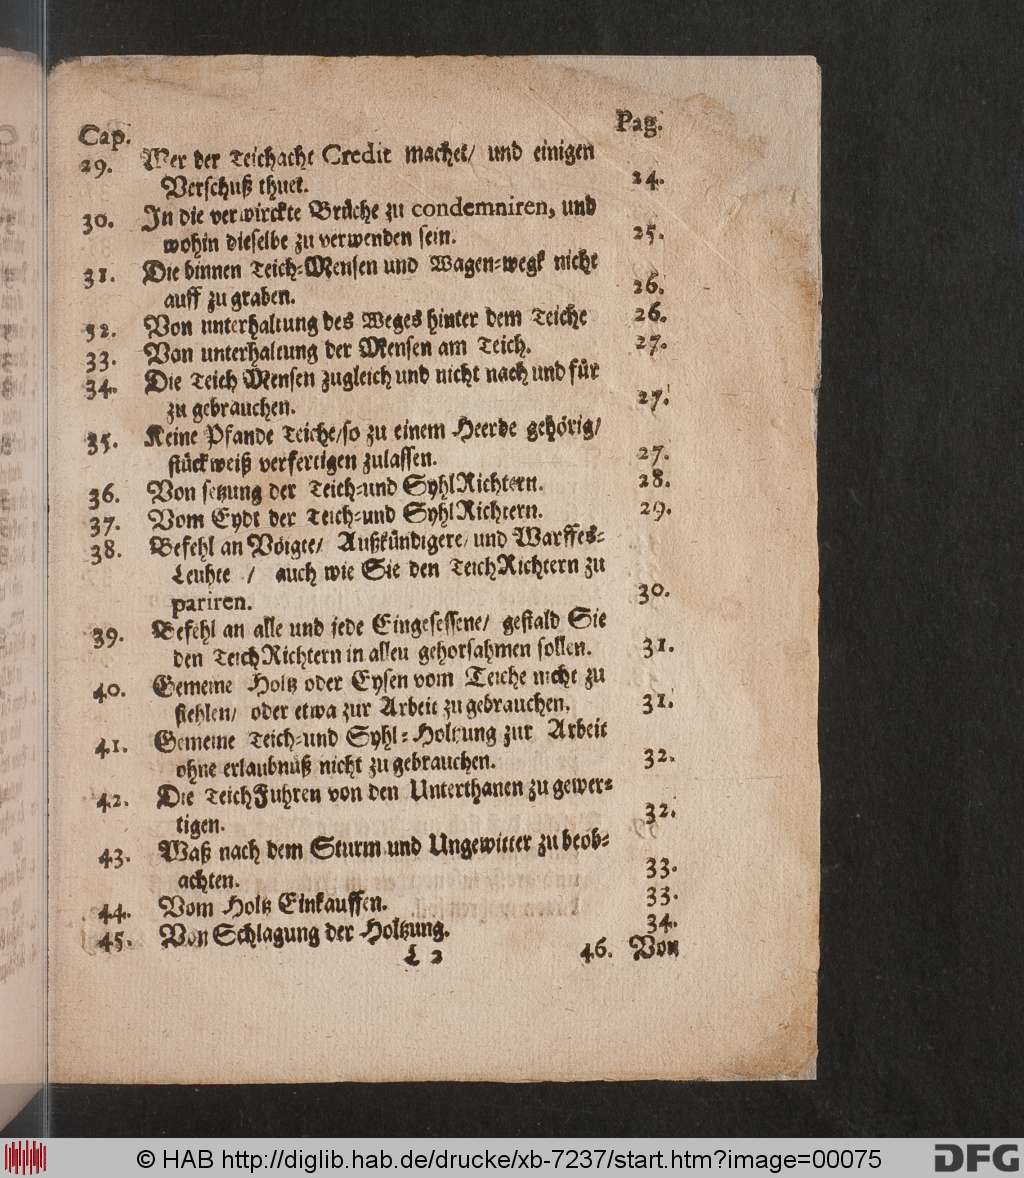 Cap. Pag.
29. Wer der Teichacht Credit machet/ und einigen
Verschuß thuet. 24.
30. In die verwirckte Brüche zu condemniren, und
wohin dieselbe zu verwenden sein. 25.
31. Die binnen Teich-Mensen und Wagen-wegk nicht
auff zu graben. 26.
32. Von unterhaltung des Weges hinter dem Teiche 26.
33. Von unterhaltung der Mensen am Teich. 27.
34. Die Teich Mensen zugleich und nicht nach und für
zu gebrauchen. 27.
35. Keine Pfande Teiche/so zu einem Heerde gehörig/
stückweiß verfertigen zulassen. 27.
36. Von setzung der Teich-und SyhlRichtern. 28.
37. Vom Eydt der Teich-und SyhlRichtern. 29.
38. Befehl an Vöigte/ Außkündigere/ und Warffes-
Leuhte / auch wie Sie den TeichRichtern zu
pariren. 30.
39. Befehl an alle und jede Eingesessene/ gestald Sie
den TeichRichtern in alleu gehorsahmen sollen. 31.
40. Gemeine Holtz oder Eysen vom Teiche nicht zu
stehlen/ oder etwa zur Arbeit zu gebrauchen. 31.
41. Gemeine Teich-und Syhl-Holtzung zur Arbeit
ohne erlaubnüß nicht zu gebrauchen. 32.
42. Die TeichFuhren von den Unterthanen zu gewer-
tigen. 32.
43. Waß nach dem Sturm und Ungewitter zu beob-
achten. 33.
44. Vom Holtz Einkauffen. 33.
45. Von Schlagung der Holtzung. 34.
L 2 46. Von
© HAB http://diglib.hab.de/drucke/xb-7237/start.htm?image=00075
DFG